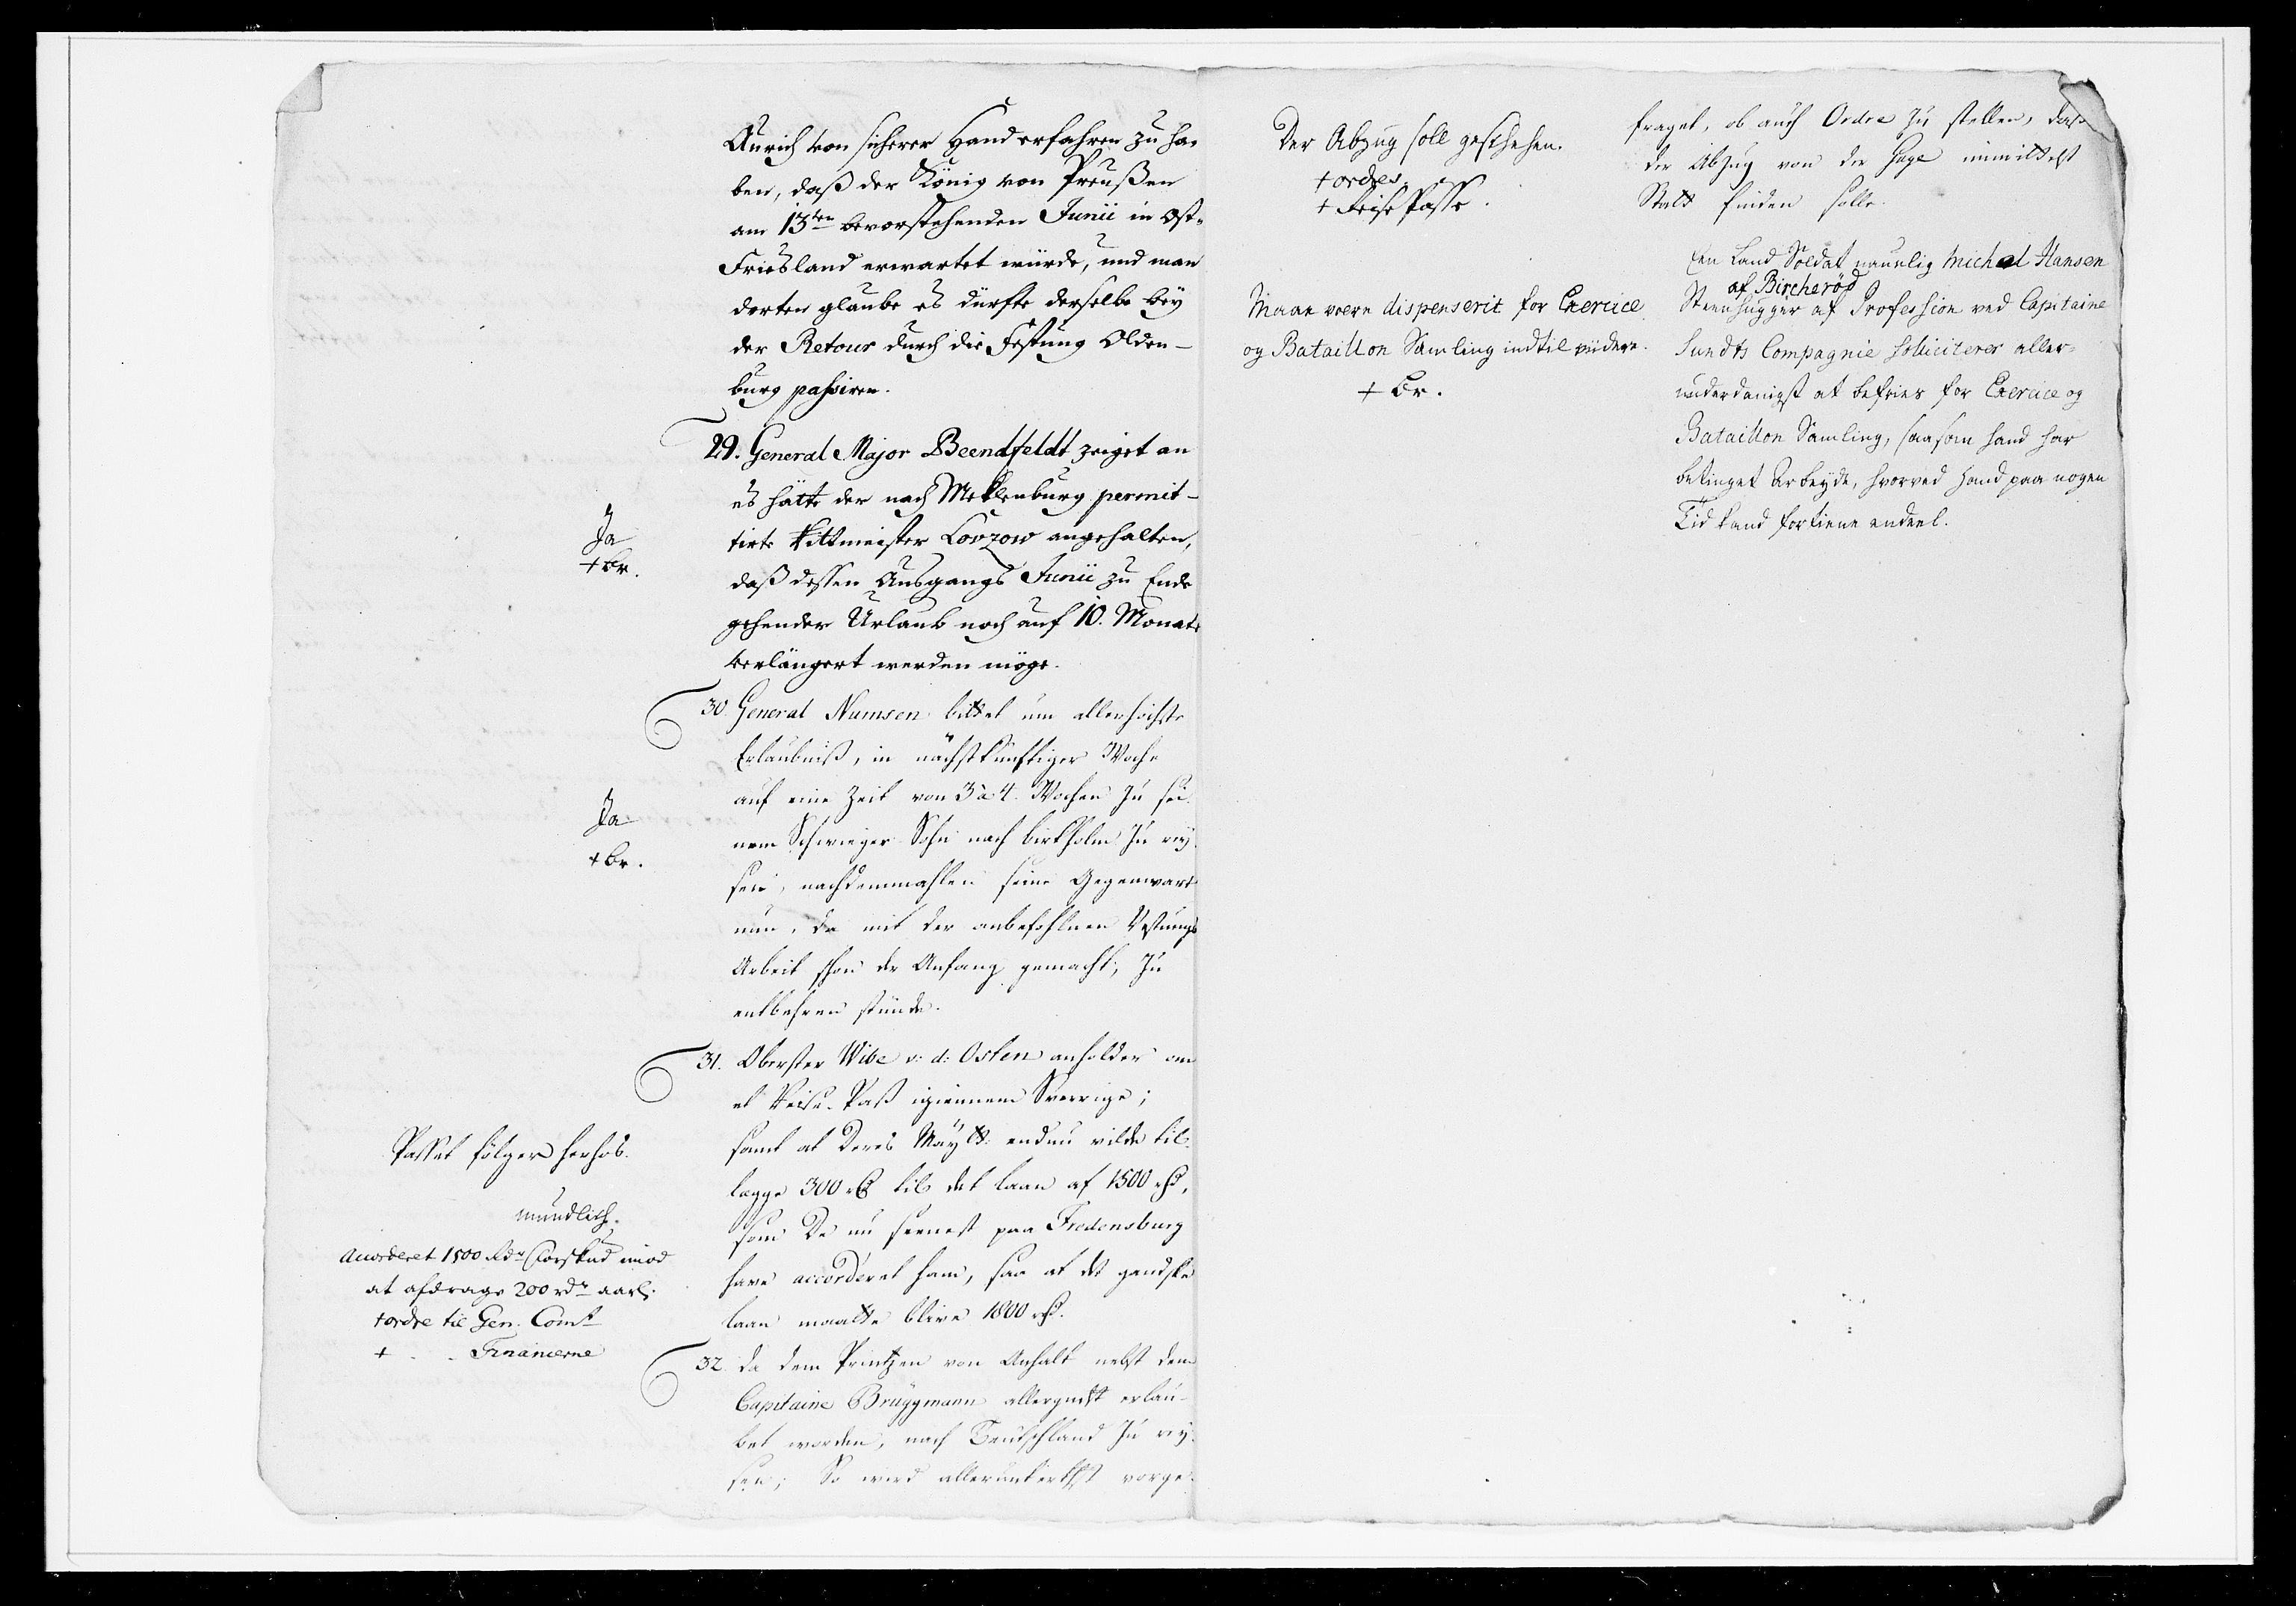 Aurich von sicherer Hand erfahren zu ha-
ben, daß der König von Preußen
am 13ten bevorstehenden Junii in Ost-
Friesland erwartet würde, und man
dorten glaube es dürfte derselbe bey
der Retour durch die Festung Olden-
burg passiren.
29. General Major Beendfeldt zeiget an
es hätte der nach Meklenburg permit-
tirte Rittmeister Lovzow angehalten,
daß dessen Ausgangs Junii zu Ende
gehender Urlaub noch auf 10. Monate
verlängert werden möge.
Ja
+ Br.
30. General Numsen bittet um allerhöchste
Erlaubniß, in nächstkünftiger Woche
auf eine Zeit von 3 à 4. Wochen zu sei-
nem Schwieger Sohn nach birkholm zu rey-
sen, nachdemmahlen seine Gegenwart
nun, da mit der anbefohlnen Vestungs
Arbeit schon der Anfang gemacht, zu
entbehren stünde.
Ja
+ Br.
31. Oberster Wibe v: d: Osten anholder om
et Reise-Paß igiennem Sverrige;
samt at Deres Maytt: endnu vilde til-
lægge 300 rd til det laan af 1500 rd,
som De nu seenest paa Fredensburg
have accorderet ham, saa at det gandske
laan maatte blive 1800 rd.
Passet fölger herhos.
mundlich.
Accorderet 1500 Rdr Forskud imod
at afdrage 200 rdr aarl:
+ ordre til Gen. Comt
+ . . Financerne
32. Da dem Printzen von Anhalt nebst dem
Capitaine Brüggmann allergndst erlau-
bet worden, nach Teutschland zu rey-
sen; So wird allerunterthst vorge-
fraget, ob auch Ordre zu stellen, daß
der Abzug von der Gage immittelst
Statt finden solle.
Der Abzug soll geschehen.
+ ordres
+ Reise Passe.
Een Land Soldat naunlig Michel Hansen
af Bircheröd
Steenhugger af Profession ved Capitaine
Sundts Compagnie solliciterer aller-
underdanigst at befries for Exercice og
Bataillon Samling, saasom hand har
betinget Arbeyde, hvorved hand paa nogen
Tid kand fortiene endeel.
Maae være dispenserit for Exercice
og Bataillon Samling indtil viidere.
+ Br.